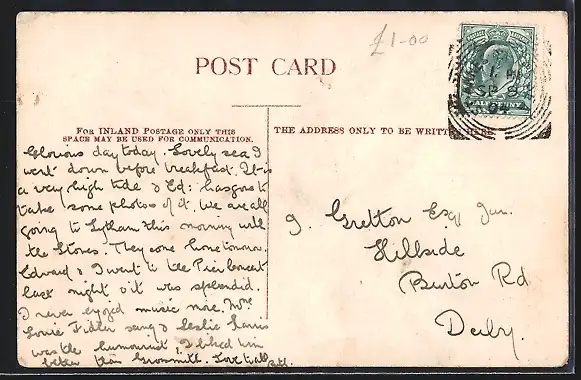 £1-00
POST CARD
FOR INLAND POSTAGE ONLY THIS
SPACE MAY BE USED FOR COMMUNICATION.
THE ADDRESS ONLY TO BE WRITTEN HERE
HALFPENNY
SP 8
Glorious day today. Lovely sea I
went down before breakfast. It is
a very high tide & Ed: has gone to
take some photos of it. We are all
going to Lytham this morning with
the Stones. They come home tomorrow.
Edward & I went to the Pier Concert
last night & it was splendid.
I never enjoyed music more. Mme
Louie Fidler sang & Leslie Harris
was the humourist I liked him
better than Grossmith. Love to all
G. Gretton Esq Jun.
Hillside
Burton Rd
Derby.